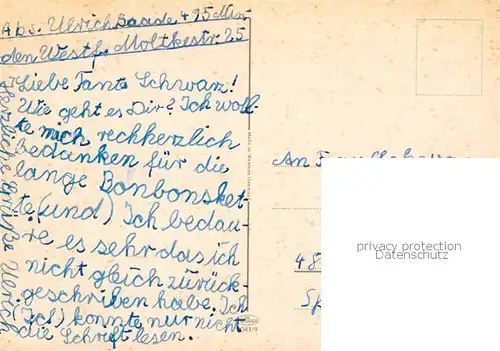 Abs. Ulrich Baade 495 Min
den Westf. Moltkestr. 25
Liebe Tante Schwarz!
Wie geht es Dir? Ich woll-
te mich rechherzlich
bedanken für die
lange Bonbonsket-
te (und) Ich bedau-
re es sehr das ich
nicht gleich zurück-
geschrieben habe. Ich
(Ich) konnte nur nicht
die Schrift lesen.
Herzliche Grüße Ulrich
An Frau
48
Sp
privacy protection
personal data